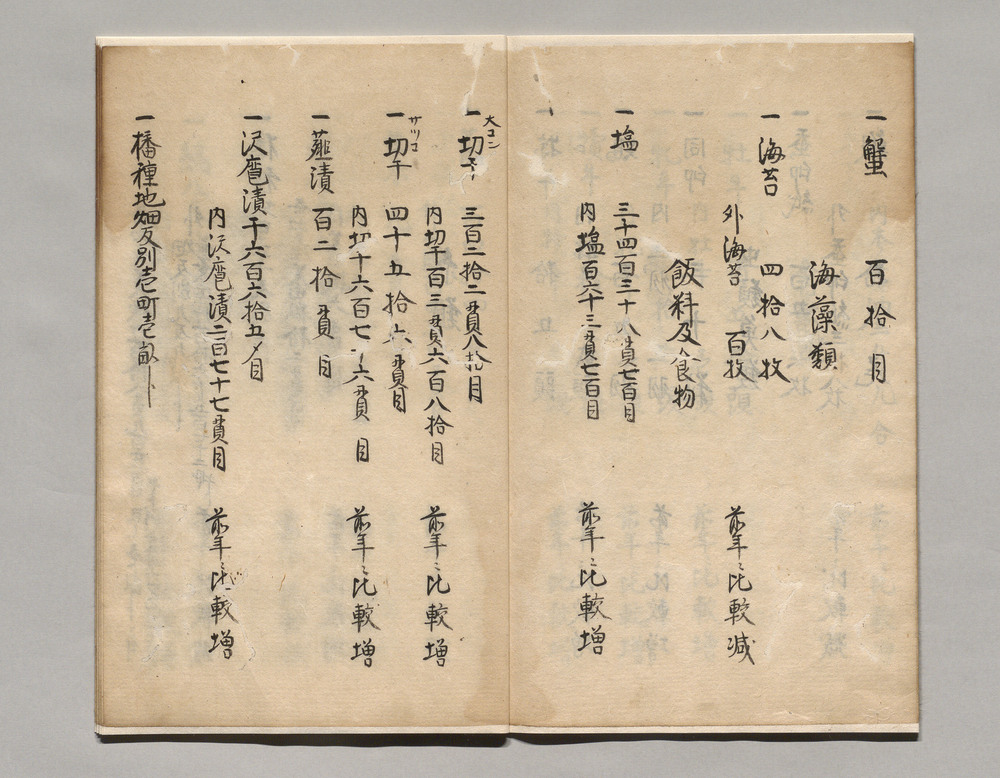 一蟹 百拾目
海藻類
一海苔 四拾八枚
外海苔 百枚 前年ニ比較減
飯料及食物
一塩 三千四百三十八貫七百目
内塩百六十三貫七百目 前年ニ比較増
一切干 大コン 三百二拾二貫八拾目
内切干百三貫六百八拾目 前年ニ比較増
一切干 サツコ 四十五拾六貫目
内切干六百七十六貫目 前年ニ比較増
一薤漬 百二拾貫目
一沢庵漬千六百六拾五〆目
内沢庵漬二百七十七貫目 前年ニ比較増
一播種地畑反別壱町壱畝